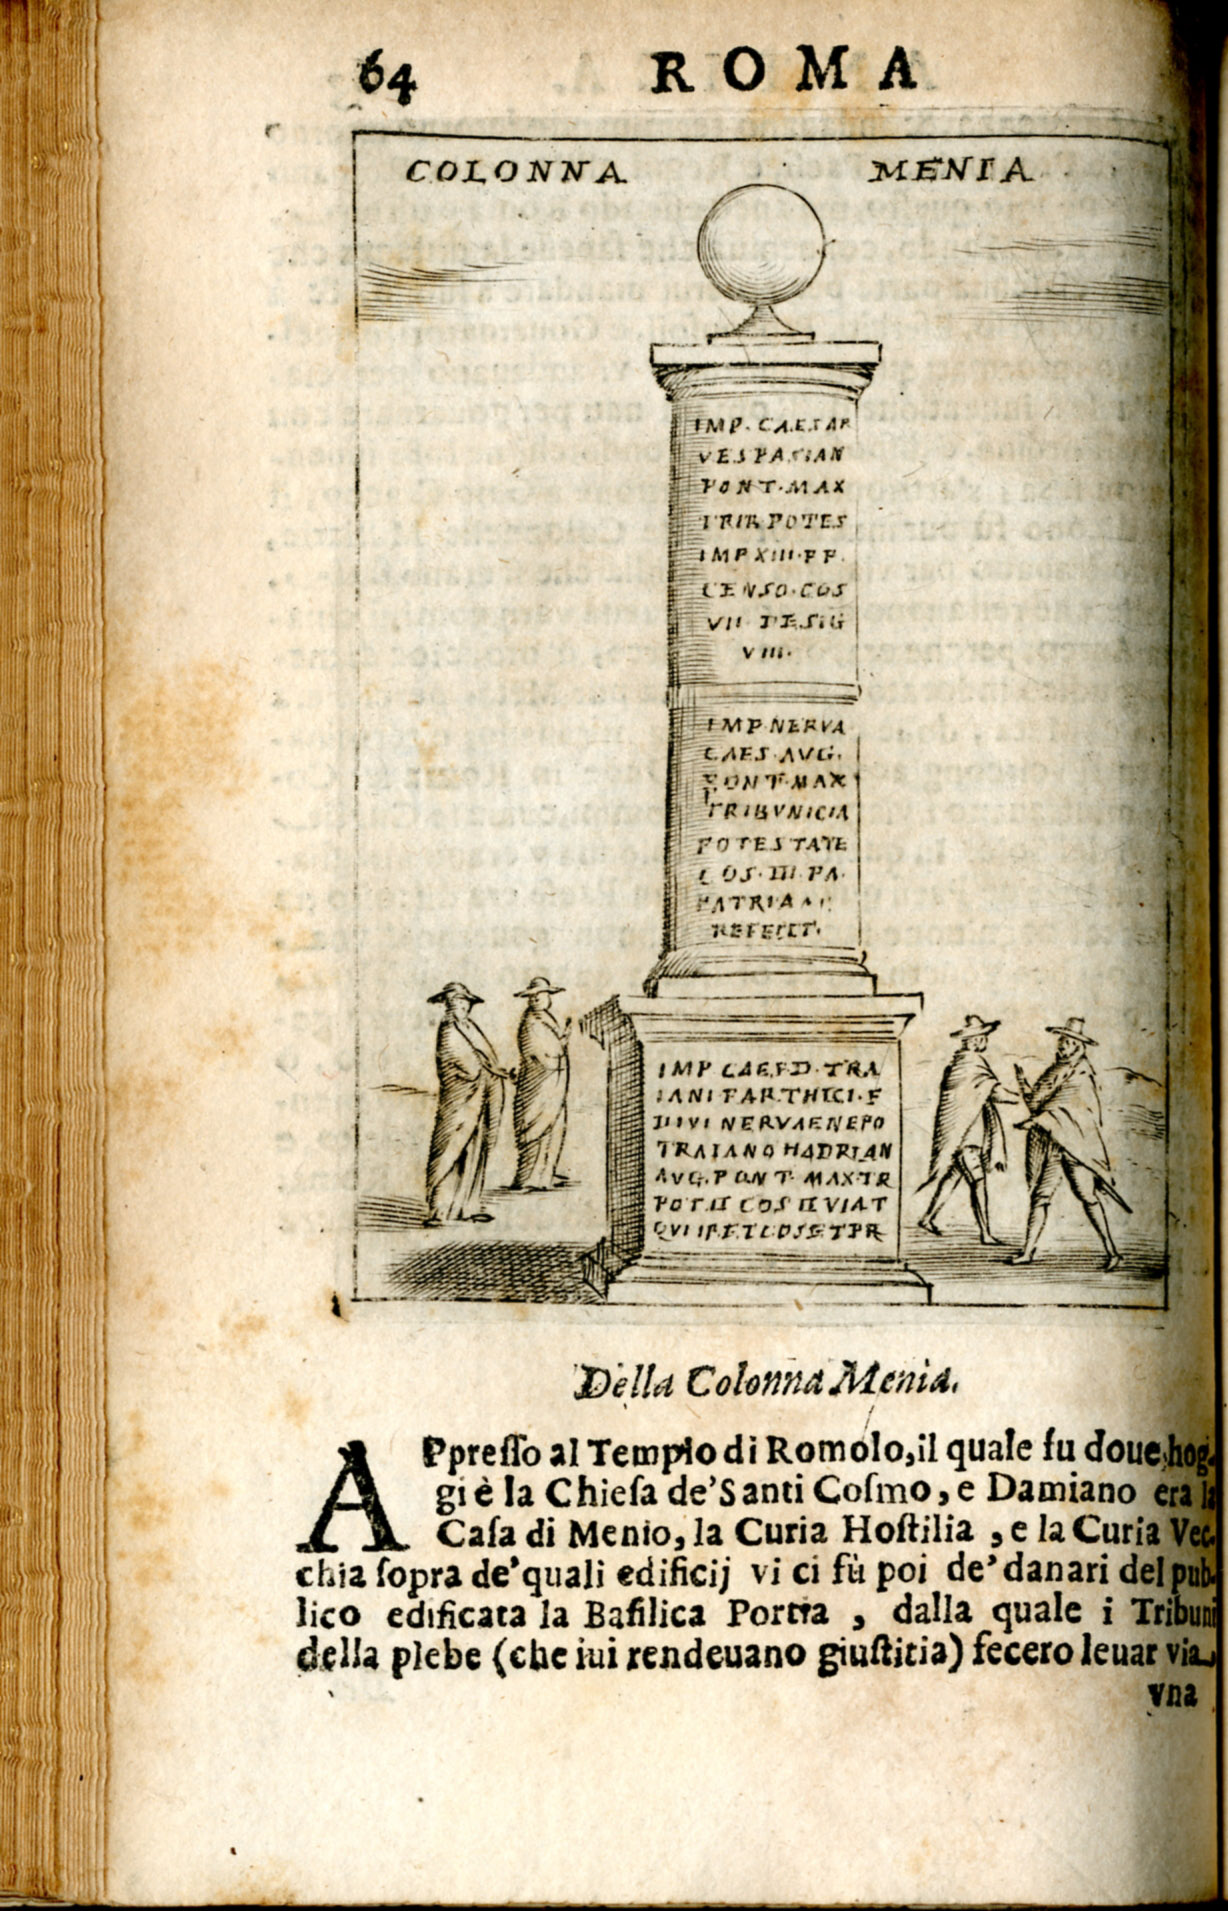 64 ROMA
COLONNA MENIA
IMP. CAESAR
VESPASIAN
PONT. MAX
TRIB POTES
IMP XIII. PP.
CENSO. COS
VII DESIG
VIII.
IMP NERVA
CAES. AVG.
PONT. MAX
TRIBVNICIA
POTESTATE
COS. III. PA.
PATRIA
REFECIT.
IMP CAES D. TRA
IANI PARTHICI. F
DIVI NERVAE NEPO
TRAIANO HADRIAN
AVG. PONT. MAX. TR
POT II COS II VIAT
QVI IP. ET COSS ET PR
Della Colonna Menia.
APpreſſo al Tempio di Romolo, il quale fu doue, hog-
gi è la Chieſa de' Santi Coſmo, e Damiano era la
Caſa di Menio, la Curia Hoſtilia, e la Curia Vec-
chia ſopra de' quali edificij vi ci fù poi de' danari del pub-
lico edificata la Baſilica Portia, dalla quale i Tribuni
della plebe (che iui rendeuano giuſtitia) fecero leuar via
vna